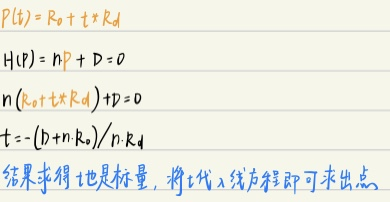 P(t) = R₀ + t * Rd
H(P) = n·P + D = 0
n(R₀ + t * Rd) + D = 0
t = -(D + n·R₀)/n·Rd
结果求得t也是标量，将t代入线方程即可求出点